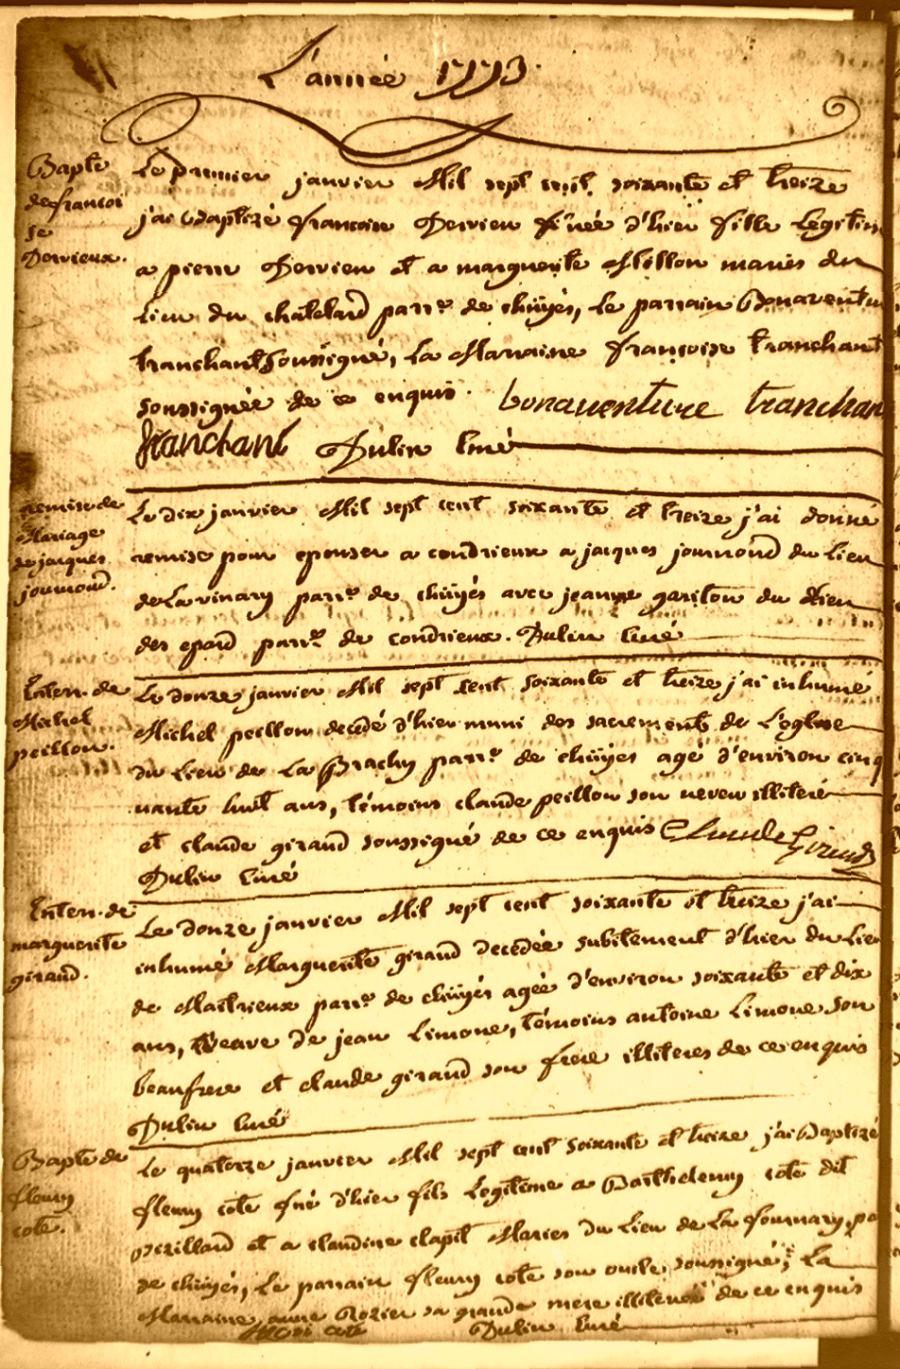 L'année 1773.
Bapte
de françoi
se
Dervieux.
Le premier janvier Mil sept cent soixante et treize
j'ai Baptizé françoise Dervieu née d'hier fille Legitim
a pierre Dervieu et a marguerite Millon mariés du
Lieu du chatelard parr.e de chüyés, Le parrain Bonaventu
tranchant soussigné, La Marraine françoise tranchant
soussignée de ce enquis. bonaventure tranchan
tranchant Dulin curé
remise de
Mariage
de jacques
journoud.
Le dix janvier Mil sept cent soixante et treize j'ai donné
remise pour epouser a condrieux a jacques journoud du Lieu
de La vinary parr.e de chüyés avec jeanne gariton du Lieu
des epard parr.e de condrieux. Dulin curé
Enterr. de
Michel
peillon.
Le douze janvier Mil sept cent soixante et treize j'ai inhumé
Michel peillon decedé d'hier muni des sacrements de L'eglise
du Lieu de La Brachy parr.e de chüyés agé d'environ cinq
uante huit ans, témoins claude peillon son neveu illiteré
et claude giraud soussigné de ce enquis Claude Giraud
Dulin curé
Enterr. de
marguerite
giraud.
Le douze janvier Mil sept cent soixante et treize j'ai
inhumé Marguerite giraud decedée subitement d'hier du Lieu
de Maitrieux parr.e de chüyés agée d'environ soixante et dix
ans, veuve de jean Limone, témoins antoine Limone son
beaufrere et claude giraud son frere illiteres de ce enquis
Dulin curé
Bapte de
fleury
cote.
Le quatorze janvier Mil sept cent soixante et treize j'ai Baptizé
fleury cote né d'hier fils Legitime a Barthelemy cote dit
et a claudine clapit Mariés du Lieu de La fournary, pa
de chüyés, Le parrain fleury cote son oncle soussigné, La
Marraine anne Rozier sa grande mere illiterée de ce enquis
cote Dulin curé